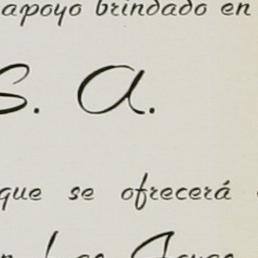 apoyo brindado en
S. A.
que se ofrecerá